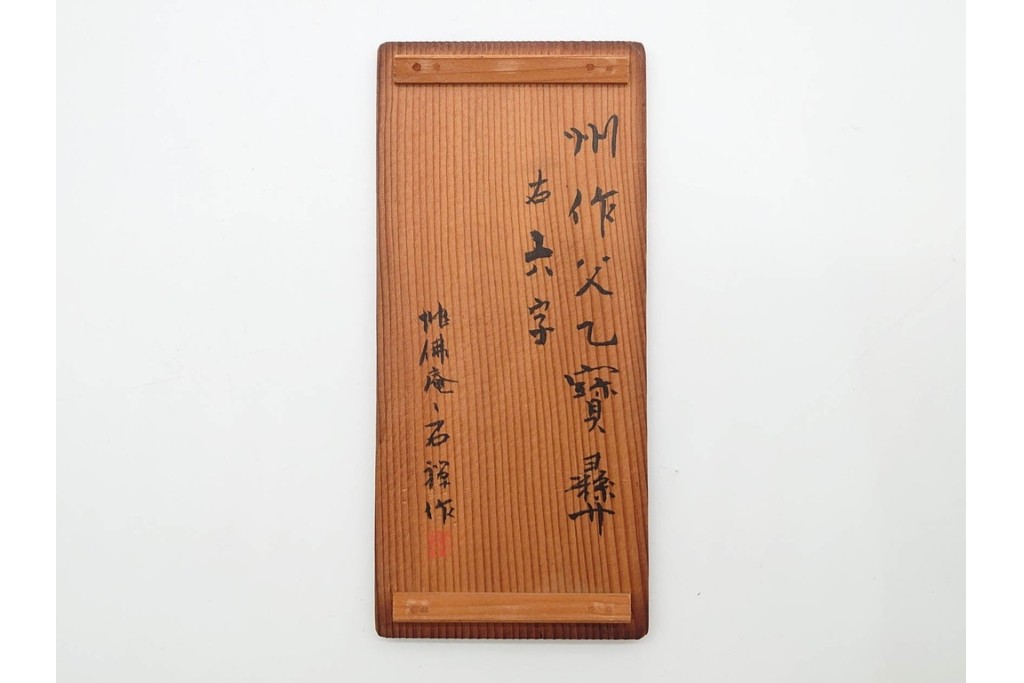 州作父乙寶彝
右六字
惟佛庵、石禅作